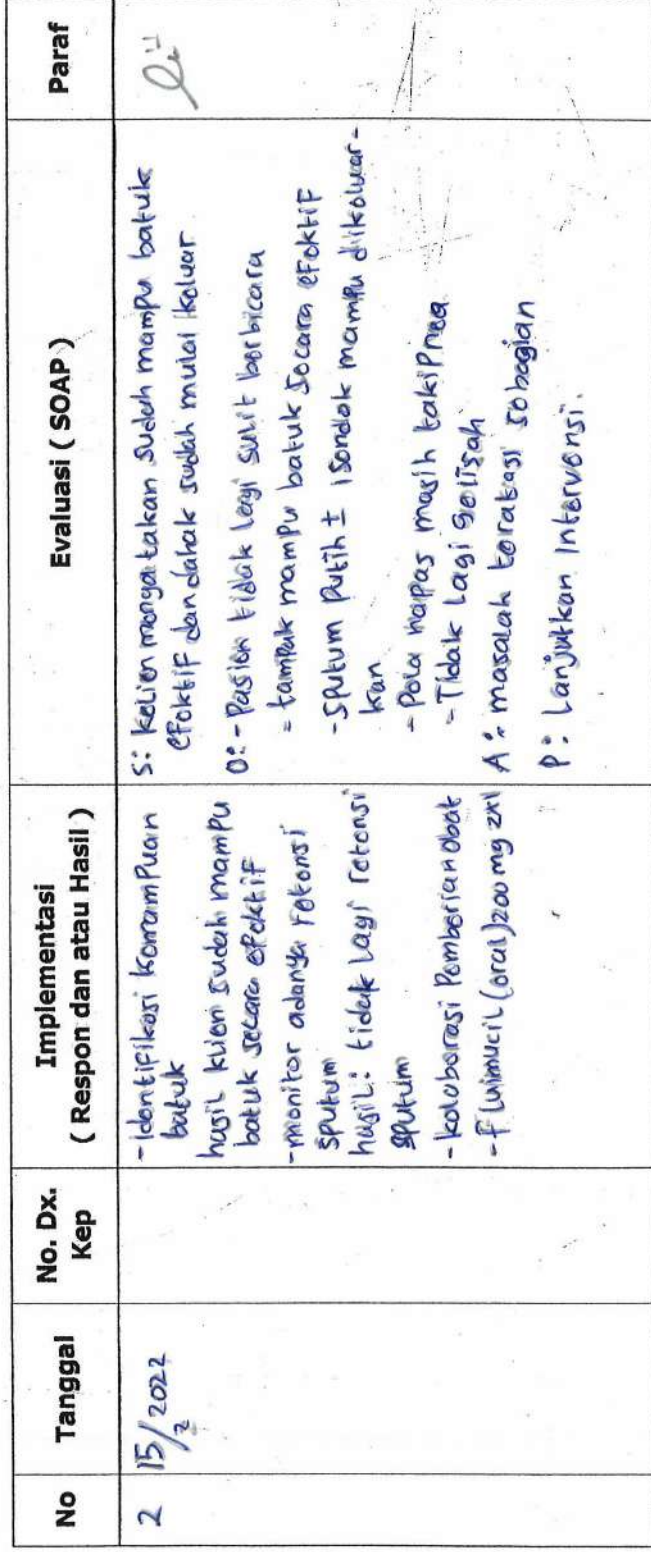 No
Tanggal
No. Dx.
Kep
Implementasi
( Respon dan atau Hasil )
Evaluasi ( SOAP )
Paraf
2
15/2 2022
-identifikasi Kemampuan
batuk
hasil klien sudah mampu
batuk secara efektif
-monitor adanya retensi
sputum
hasil: tidak lagi retensi
sputum
-kolaborasi Pemberian obat
-fluimucil (oral) 200 mg 2x1
S: kelien mengatakan sudah mampu batuk
efektif dan dahak sudah mulai keluar
O: - Pasien tidak lagi sulit berbicara
- tampak mampu batuk secara efektif
- sputum putih ± 1 sendok mampu dikeluar-
kan
- Pola napas masih takipnea
- Tidak lagi gelisah
A: masalah teratasi sebagian
P: Lanjutkan Intervensi.